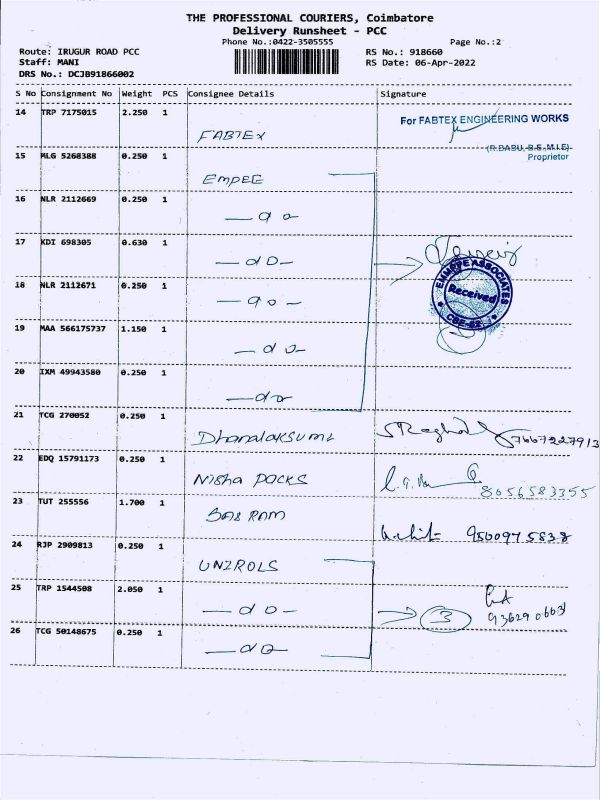 THE PROFESSIONAL COURIERS, Coimbatore
Delivery Runsheet - PCC
Phone No.:0422-3505555
Page No.:2
Route: IRUGUR ROAD PCC
RS No.: 918660
Staff: MANI
RS Date: 06-Apr-2022
DRS No.: DCJB91866002
S No Consignment No Weight PCS Consignee Details Signature
14 TRP 7175015 2.250 1
For FABTEX ENGINEERING WORKS
FABTEX
(R.BABU, B.E.,M.I.E)
Proprietor
15 MLG 5268388 0.250 1
EMPEE
16 NLR 2112669 0.250 1
— do
17 KDI 698305 0.630 1
— do —
EMMPPE ASSOCIATES
Received
18 NLR 2112671 0.250 1
— do —
19 MAA 566175737 1.150 1
— do —
20 IXM 49943580 0.250 1
— do
21 TCG 270052 0.250 1
Dhanalaksumi 7667227913
22 EDQ 15791173 0.250 1
Nisha POCKS 8056583355
23 TUT 255556 1.700 1
SAI RAM
950097 5838
24 RJP 2909813 0.250 1
UNIROLS
25 TRP 1544508 2.050 1
— do — 3
26 TCG 50148675 0.250 1
— do —